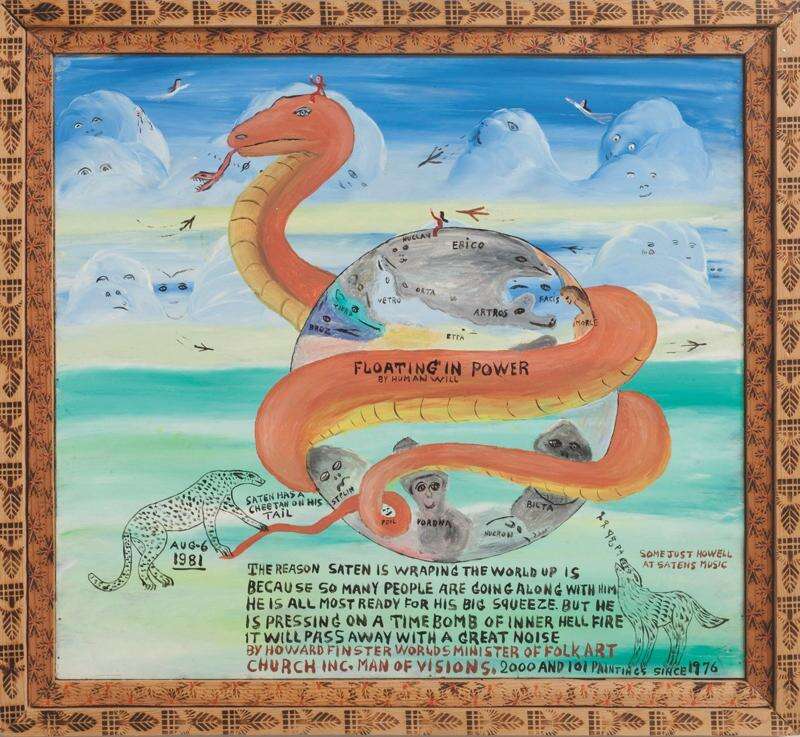 NUCLAU
ERICO
VETRO
ORTA
ARTROS
FACIS
MORLE
BROZ
ETTA
FLOATING IN POWER
BY HUMAN WILL
STPLIN
SATEN HAS A
CHEETAH ON HIS
TAIL
POIL
VORDNA
BILTA
NUCRON
AUG-6
1981
SOME JUST HOWELL
AT SATENS MUSIC
THE REASON SATEN IS WRAPING THE WORLD UP IS
BECAUSE SO MANY PEOPLE ARE GOING ALONG WITH HIM
HE IS ALL MOST READY FOR HIS BIG SQUEEZE. BUT HE
IS PRESSING ON A TIME BOMB OF INNER HELL FIRE
IT WILL PASS AWAY WITH A GREAT NOISE
BY HOWARD FINSTER WORLDS MINISTER OF FOLK ART
CHURCH INC. MAN OF VISIONS. 2000 AND 101 PAINTINGS SINCE 1976